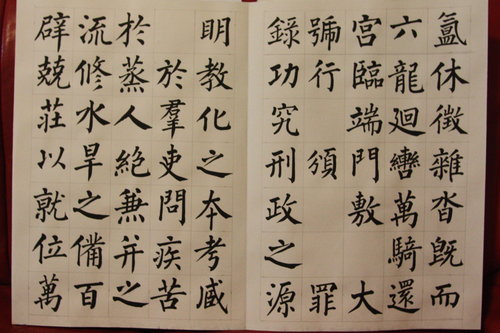 氳休徵雜沓既而
六龍迴轡萬騎還
宮臨端門敷大
號行須罪
錄功究刑政之源
明教化之本考盛
於羣吏問疾苦
於蒸人絕兼并之
流修水旱之備百
辟兢莊以就位萬